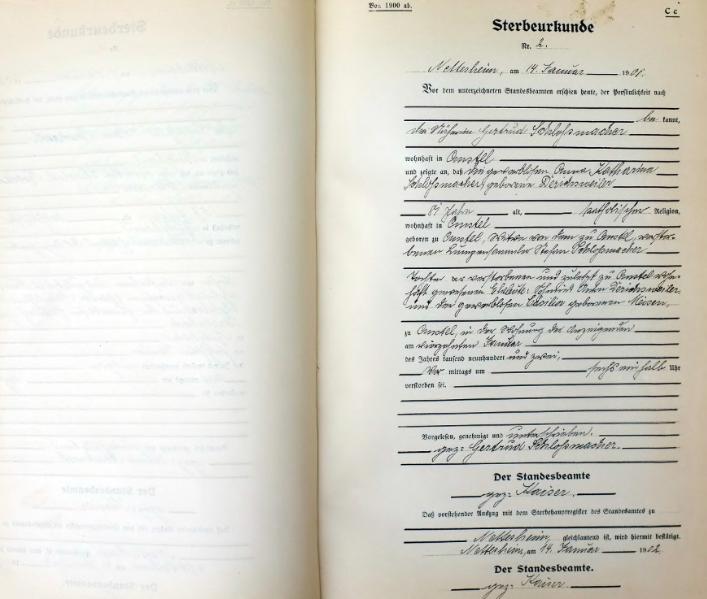 Vor. 1900 ab.
C c
Sterbeurkunde
Nr. 2.
Nettersheim, am 14. Januar 1902.
Vor dem unterzeichneten Standesbeamten erschien heute, der Persönlichkeit nach
be kannt,
die Näherin Gertrud Schloßmacher
wohnhaft in
und zeigte an, daß die gewerblosen Anna Katharina
Schloßmacher, geborene Derichsweiler
81 Jahre alt, katholischer Religion,
wohnhaft in
geboren zu Witwe von dem zu verstor-
benen Lumpensammler Stefan Schloßmacher
Tochter der verstorbenen und zuletzt zu wohn-
haft gewesenen Eheleute: Derichsweiler
und der gewerblosen Cäcilia geborenen
zu in der Wohnung der Anzeigenden
am vierzehnten Januar
des Jahres tausend neunhundert und zwei,
Vor mittags um sechs ein halb Uhr
verstorben sei.
Vorgelesen, genehmigt und unterschrieben.
gez: Gertrud Schloßmacher.
Der Standesbeamte
gez: Kaiser.
Daß vorstehender Auszug mit dem Sterbehauptregister des Standesamtes zu
Nettersheim, gleichlautend ist, wird hiermit bestätigt.
Nettersheim, am 14. Januar 1902.
Der Standesbeamte.
gez: Kaiser.